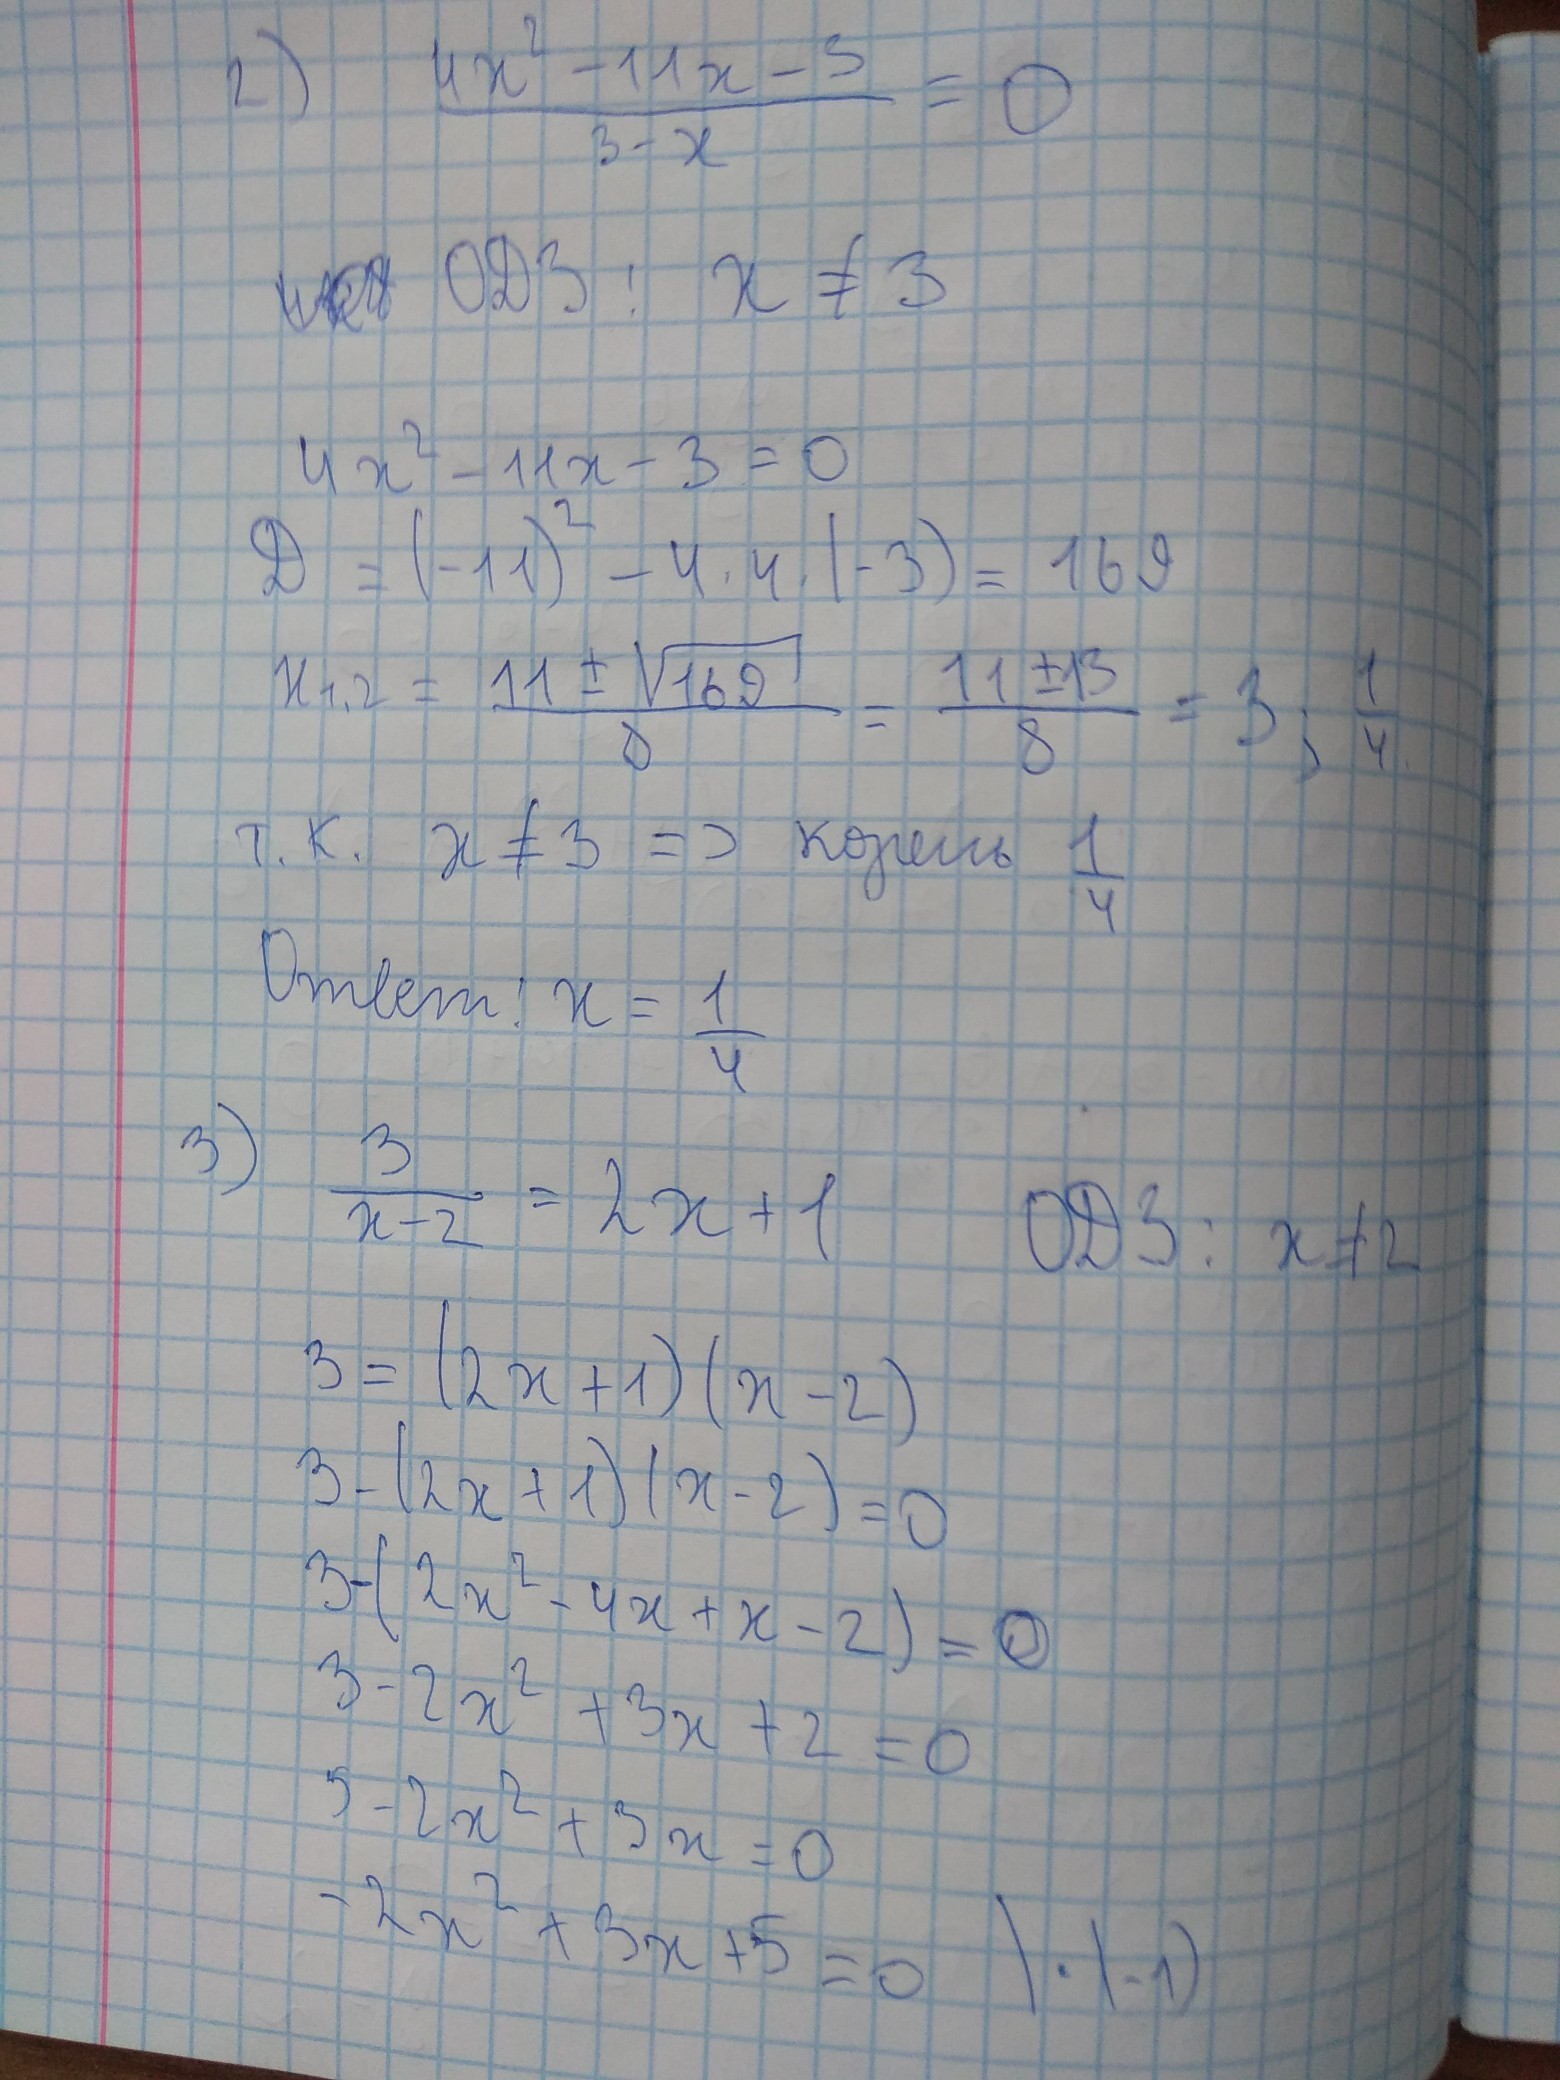 2) (4x² - 11x - 3)/(3 - x) = 0
ОДЗ: x ≠ 3
4x² - 11x - 3 = 0
D = (-11)² - 4·4·(-3) = 169
x1,2 = (11 ± √169)/8 = (11 ± 13)/8 = 3; 1/4
т.к. x ≠ 3 => корень 1/4
Ответ: x = 1/4
3) 3/(x-2) = 2x + 1 ОДЗ: x ≠ 2
3 = (2x + 1)(x - 2)
3 - (2x + 1)(x - 2) = 0
3 - (2x² - 4x + x - 2) = 0
3 - 2x² + 3x + 2 = 0
5 - 2x² + 3x = 0
-2x² + 3x + 5 = 0 | · (-1)